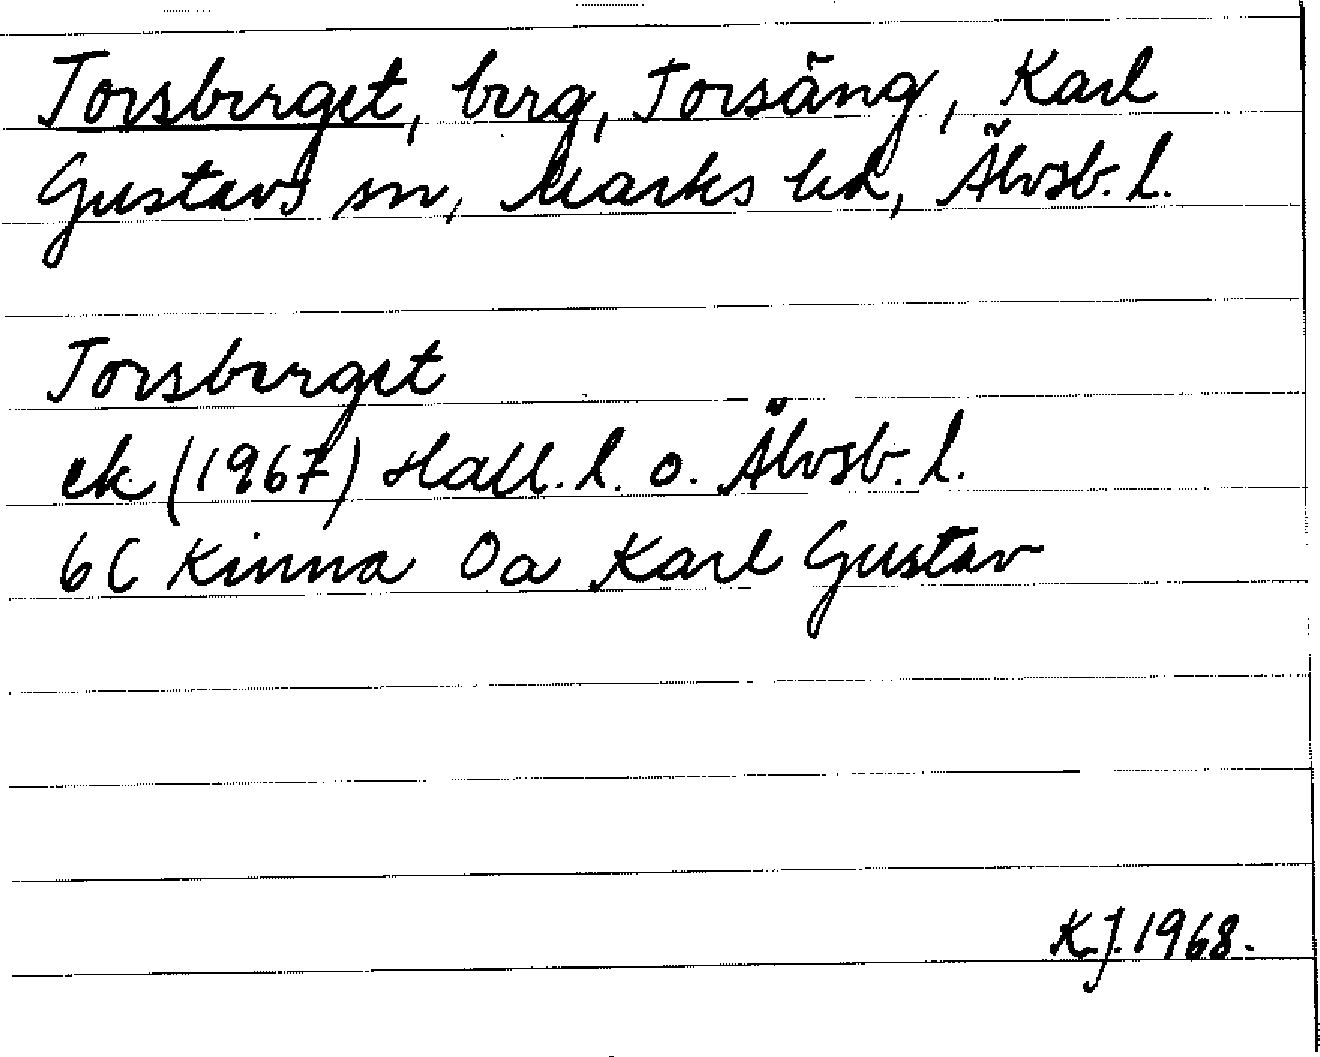 Torsberget, berg, Torsäng, Karl
Gustavs sn, Marks hd, Älvsb. l.
Torsberget
ek (1967) Hall. l. o. Älvsb. l.
6C Kinna 0a Karl Gustav
K.J. 1968.